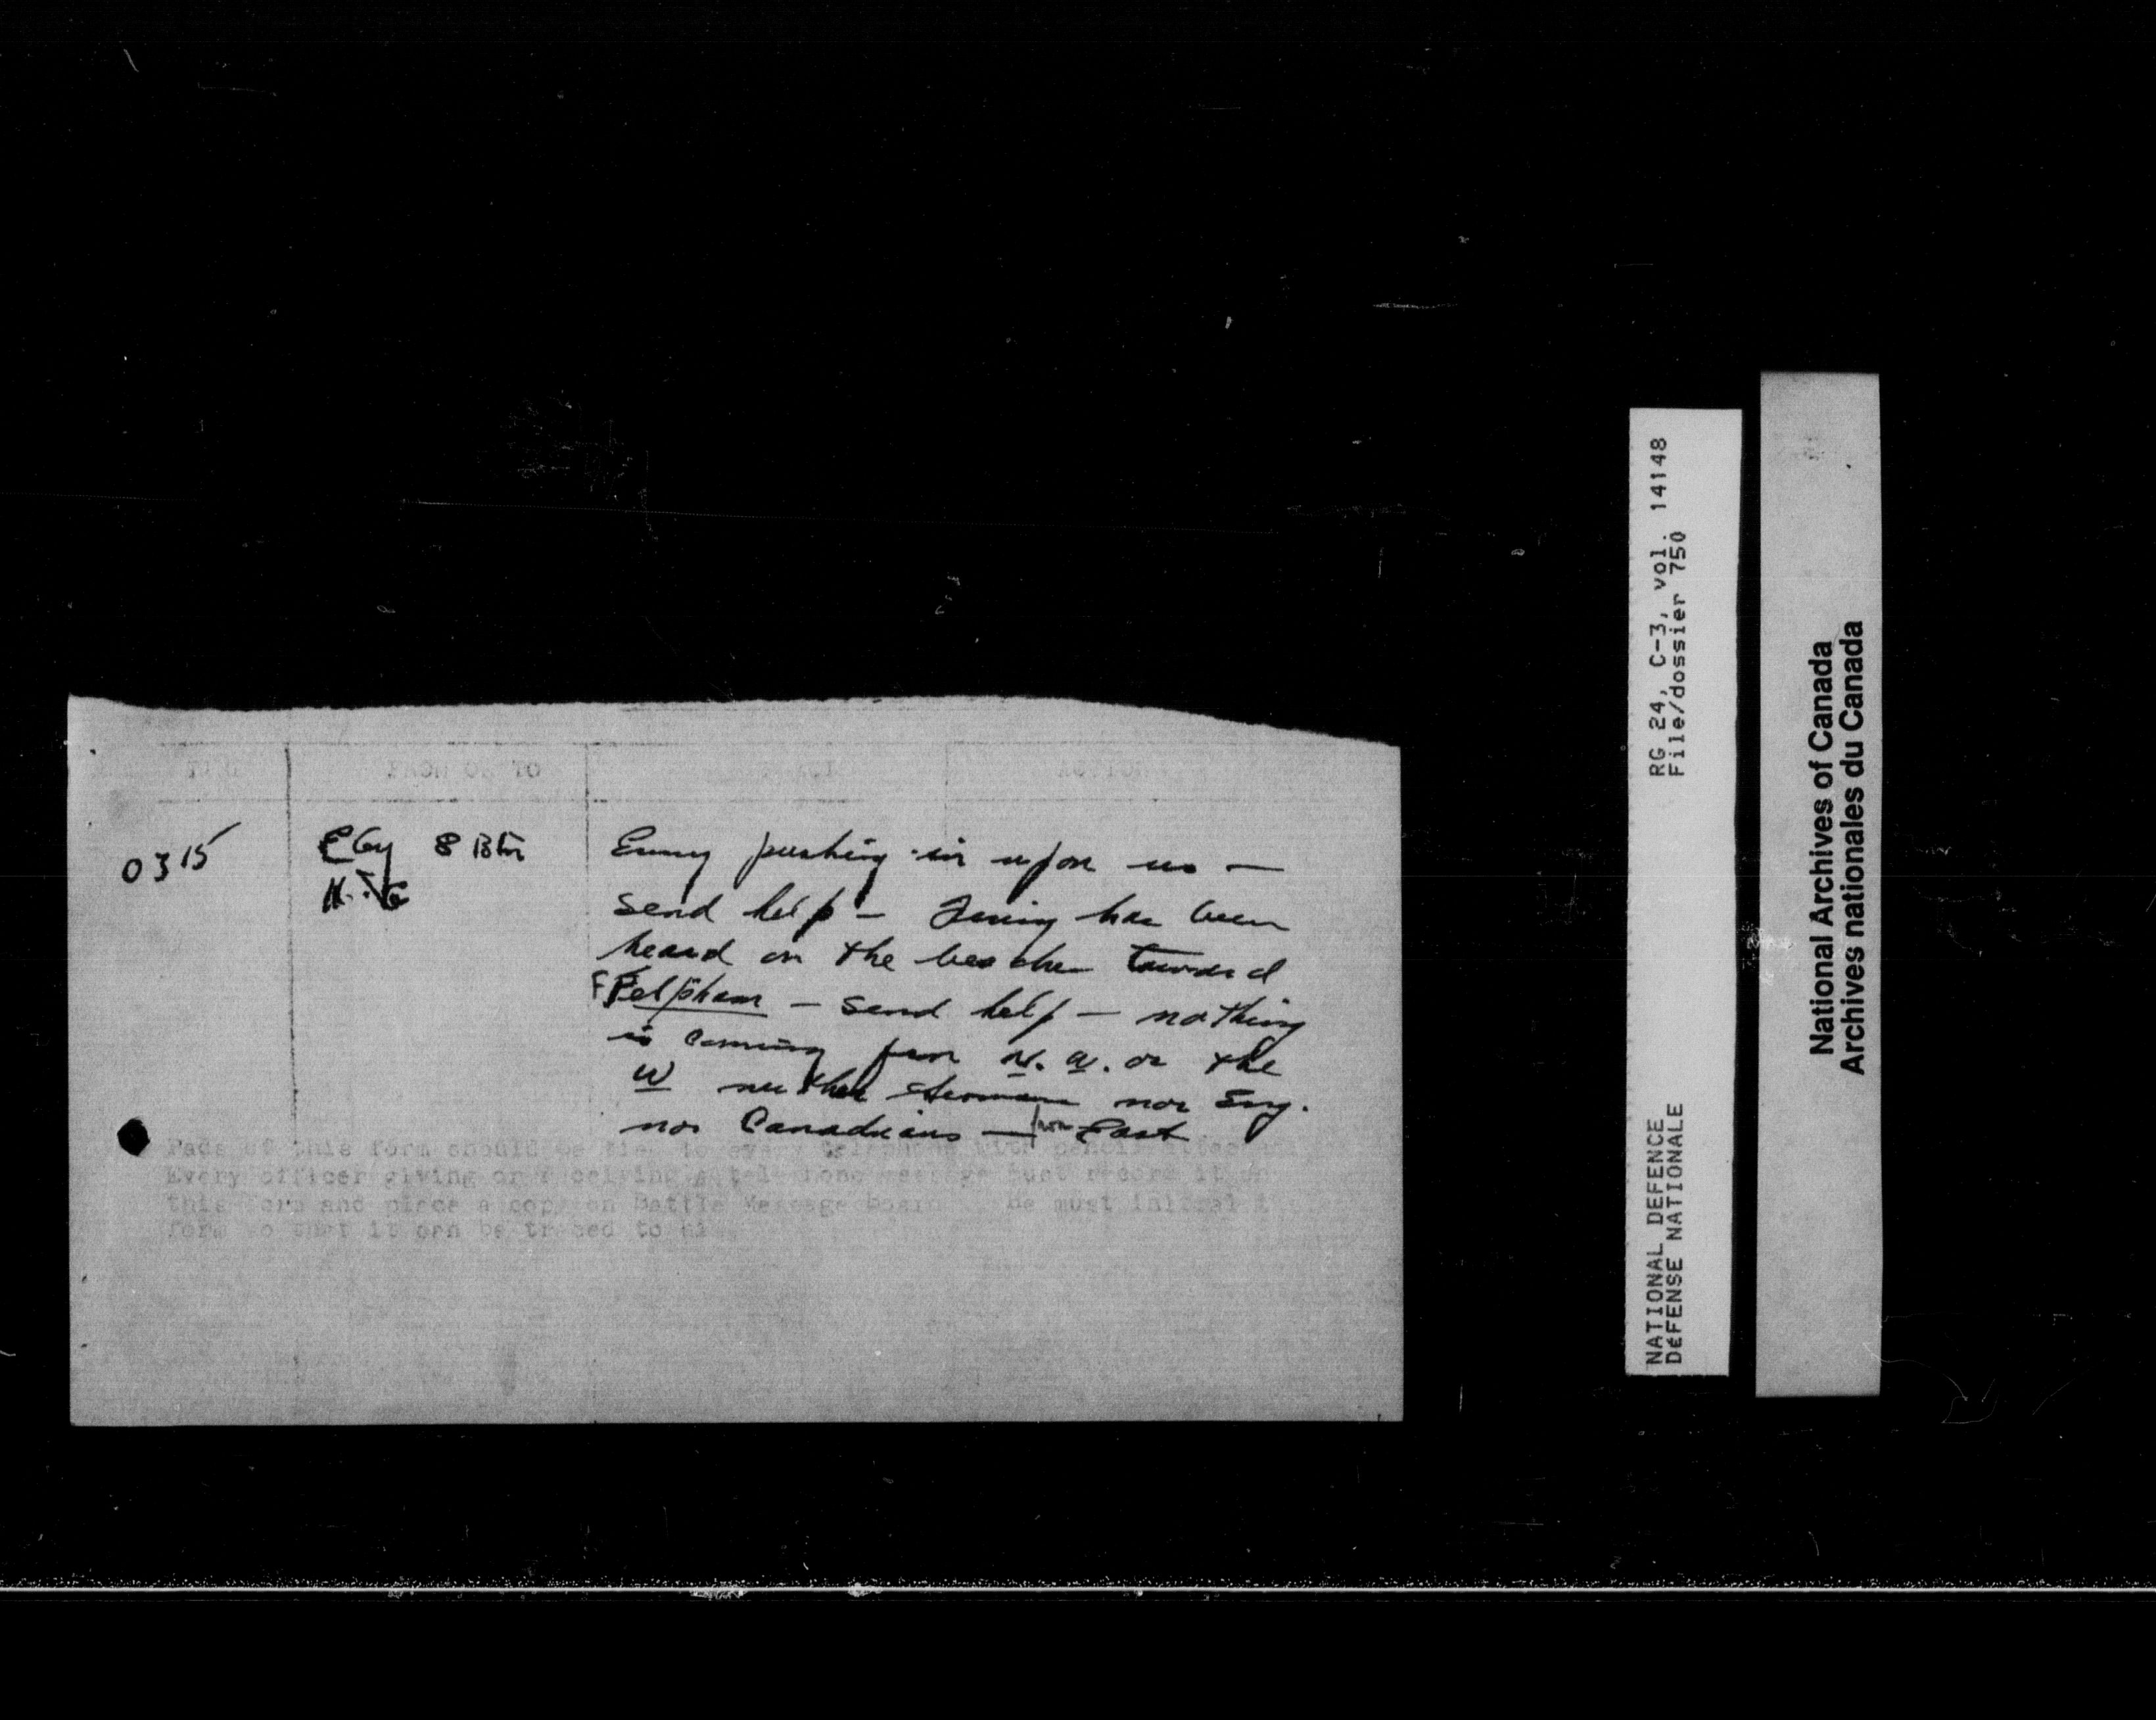 TIME FROM OR TO ACTION
0315
8 Btn
Enemy pushing in upon us —
send help — Firing has been
heard on the beaches toward
Felpham — send help — nothing
is coming from N. W. or the
W neither Germans nor Eng.
nor Canadians — from East
Pads of this form should be tied to every telephone with pencil
Every officer giving or receiving a telephone message must record it on
this form and place a copy on Battle Message board. He must initial
form so that it can be traced to him.
NATIONAL DEFENCE RG 24, C-3, vol. 14148
DéFENSE NATIONALE File/dossier 750
National Archives of Canada
Archives nationales du Canada